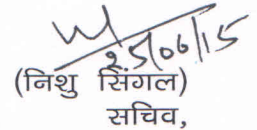 25/06/15
(निशु सिंगल)
सचिव,